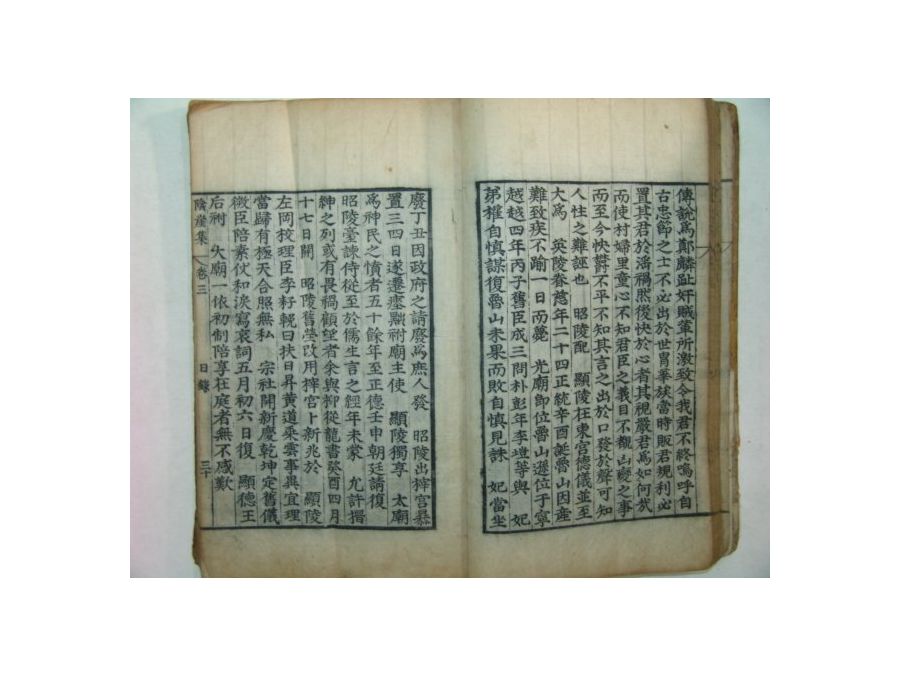 傳說爲鄭麟趾奸賊輩所激致令我君不終嗚呼自
古忠節之士不必出於世胄華族當時販君規利必
置其君於湯禍然後快於心者其視嚴君爲如何哉
而使村婦里童心不知君臣之義目不覩山變之事
而至今快欝不平不知其言之出於口發於聲可知
人性之難誣也 昭陵配 顯陵在東宮德儀並至
大爲 英陵眷隱年二十四正統辛酉誕魯山因産
難致疾不踰一日而薨 光廟即位魯山遜位于寧
越越四年丙子舊臣成三問朴彭年李塏等與 妃
弟權自愼謀復魯山未果而敗自愼見誅 妃當坐
廢丁丑因政府之請廢爲庶人發 昭陵出梓宮暴
置三四日遂遷瘞黜祔廟主使 顯陵獨享 太廟
爲神民之憤者五十餘年至正德壬申朝廷請復
昭陵臺諫侍從至於儒生言之經年未蒙 允許搢
紳之列或有畏禍顧望者余與抑從龍書癸酉四月
十七日開 昭陵舊塋改用梓宮卜新兆於 顯陵
左岡校理臣李耔輓曰扶日昇黃道乘雲事異宜理
當歸有極天合照無私 宗社開新慶乾坤定舊儀
微臣陪素仗和淚寫哀詞五月初六日復 顯德王
后祔 大廟一依初制陪享在庭者無不感歎
陰崖集 卷三 日錄 三十